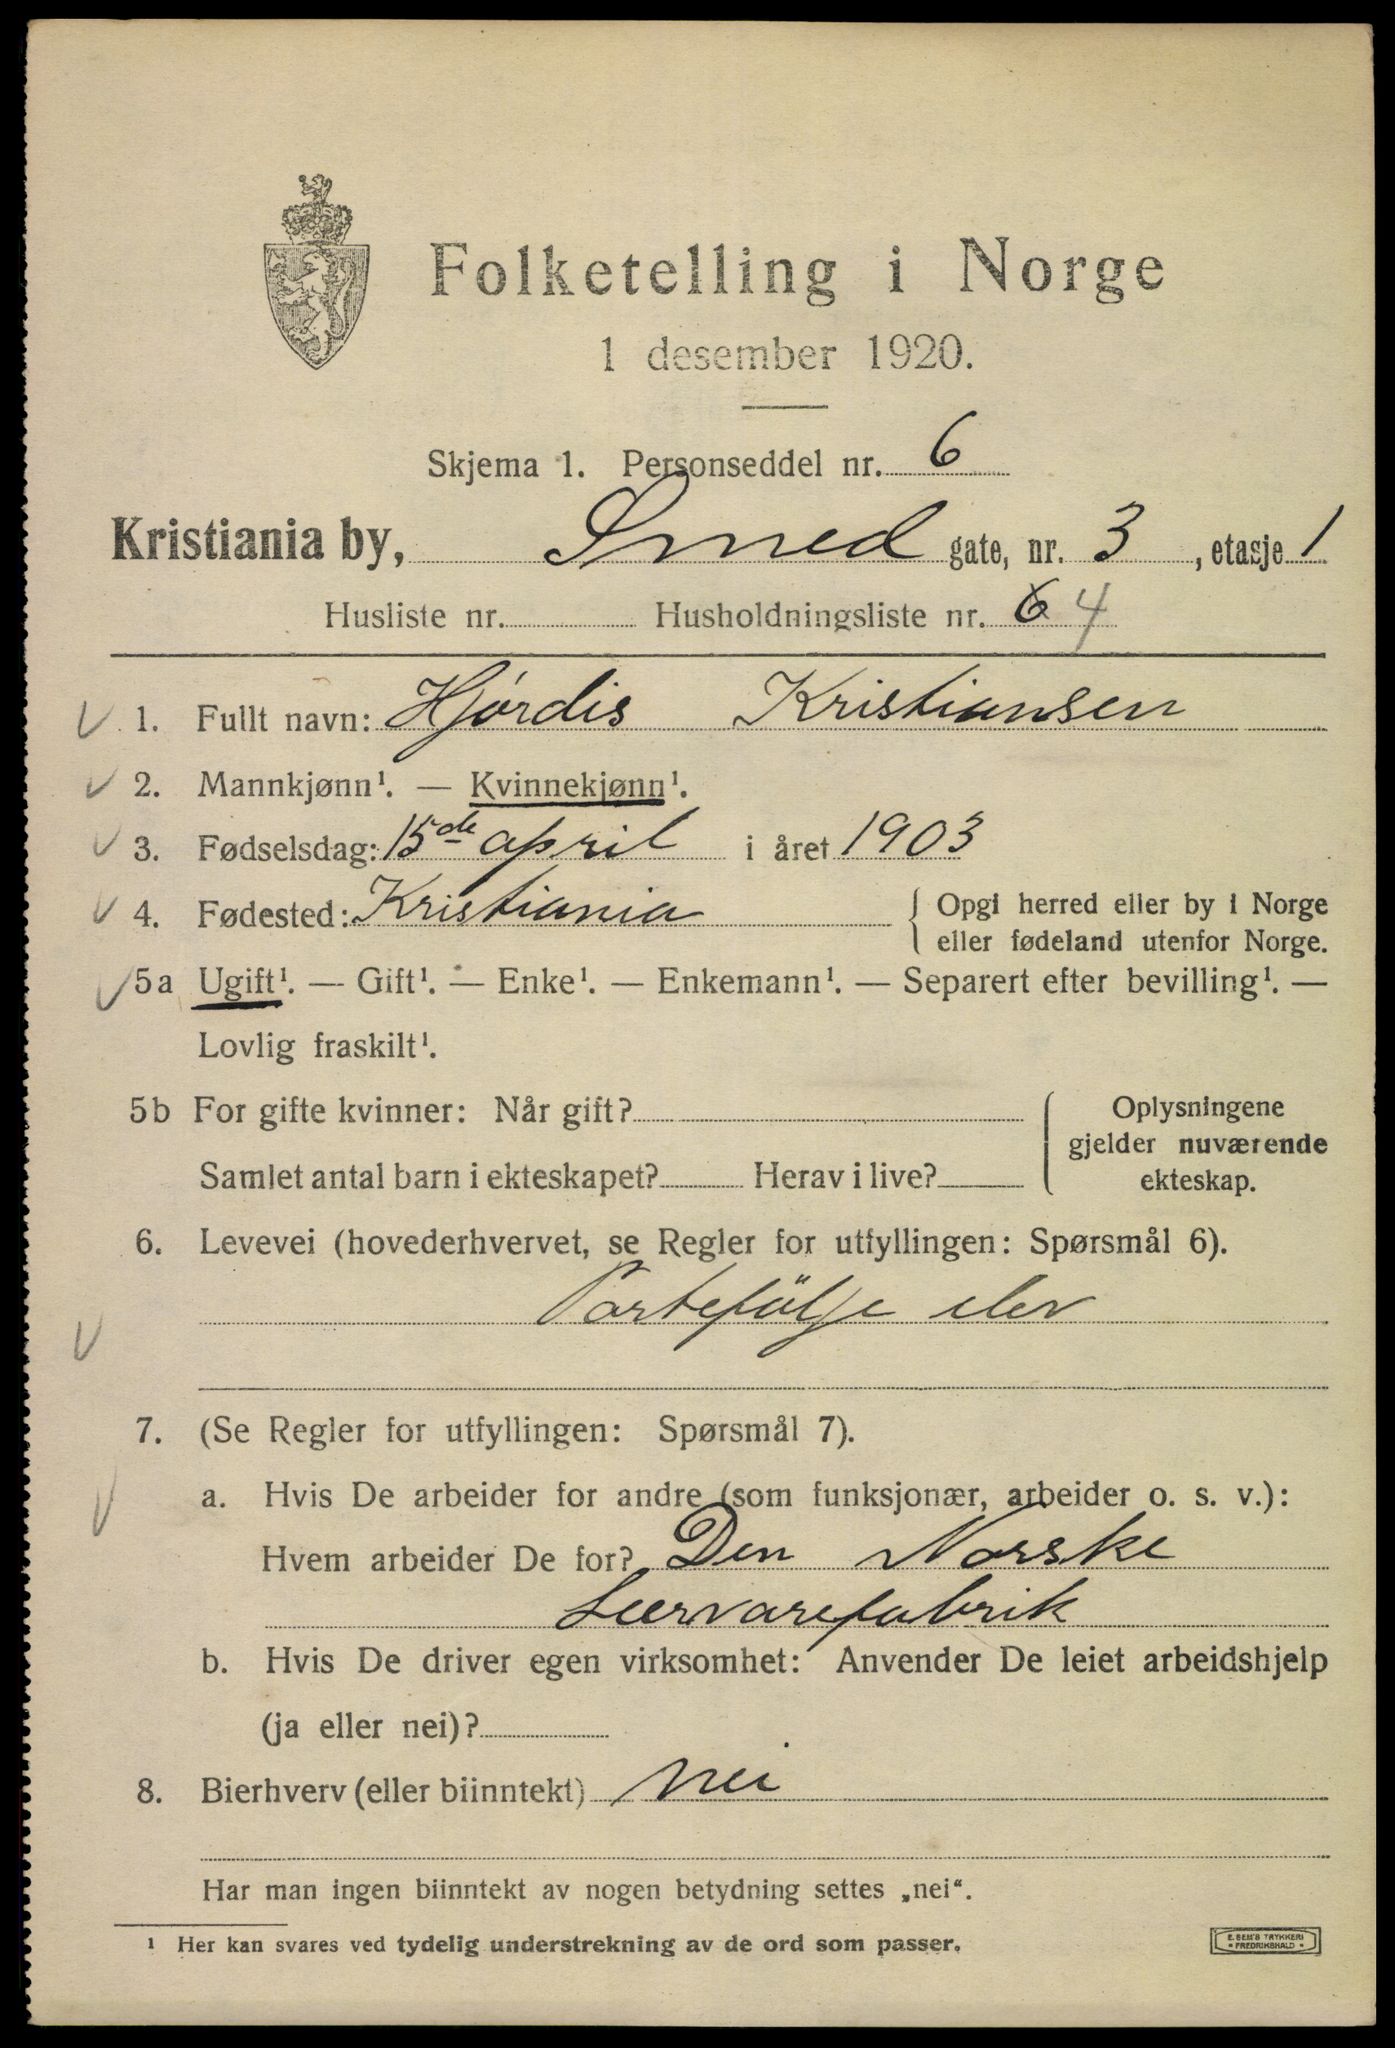 Folketelling i Norge
1 desember 1920.
Skjema 1. Personseddel nr. 6
Kristiania by, Smed gate, nr. 3, etasje 1
Husliste nr. Husholdningsliste nr. 6 4
1. Fullt navn: Hjørdis Kristiansen
2. Mannkjønn¹. — Kvinnekjønn¹.
3. Fødselsdag: 15de april i året 1903
4. Fødested: Kristiania { Opgi herred eller by i Norge
eller fødeland utenfor Norge.
5a Ugift¹. — Gift¹. — Enke¹. — Enkemann¹. — Separert efter bevilling¹. —
Lovlig fraskilt¹.
5b For gifte kvinner: Når gift? Oplysningene
gjelder nuværende
Samlet antal barn i ekteskapet? Herav i live? ekteskap.
6. Levevei (hovederhvervet, se Regler for utfyllingen: Spørsmål 6).
Portefölje elev
7. (Se Regler for utfyllingen: Spørsmål 7).
a. Hvis De arbeider for andre (som funksjonær, arbeider o. s. v.):
Hvem arbeider De for? Den Norske
Lærvarefabrik
b. Hvis De driver egen virksomhet: Anvender De leiet arbeidshjelp
(ja eller nei)?
8. Bierhverv (eller biinntekt) nei
Har man ingen biinntekt av nogen betydning settes „nei“.
¹ Her kan svares ved tydelig understrekning av de ord som passer.
E. SEM'S TRYKKERI
• FREDRIKSHALD •